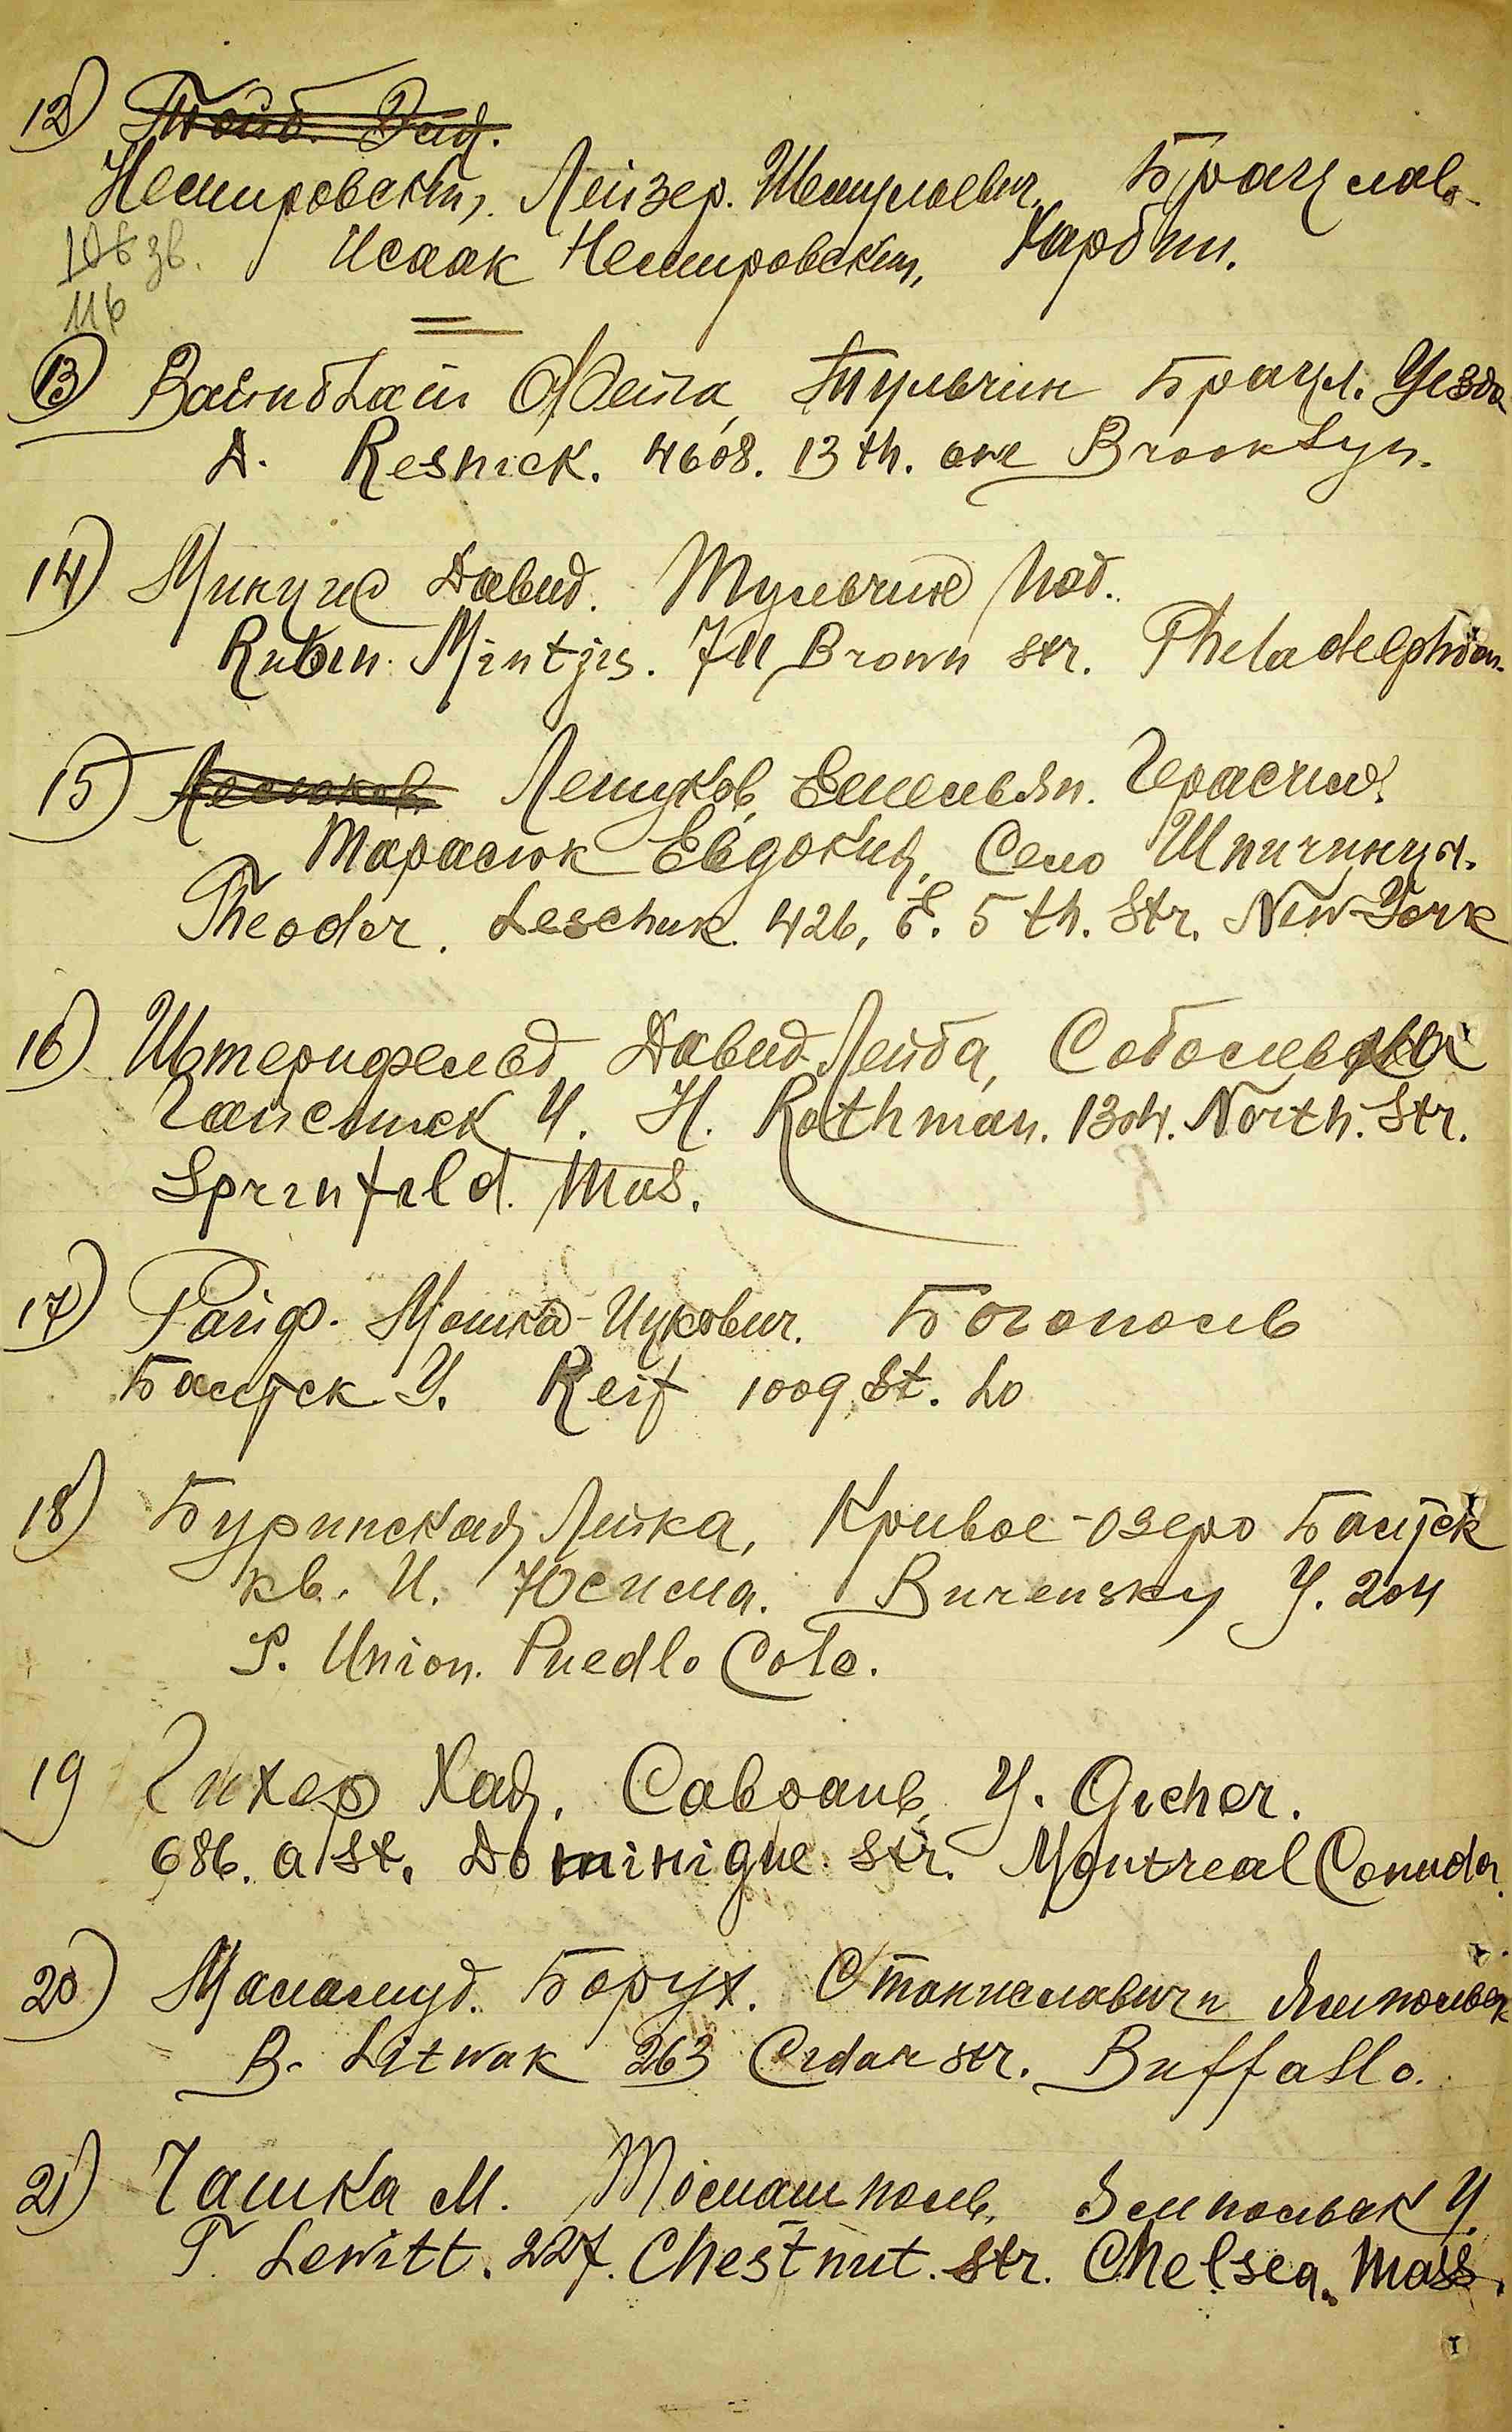 12)
Немировский, Лейзер. Шмулевич, Брацлав.
Исаак Немировский, Харбин.
116
13) Вайнблат Фейга, Тульчин Брацл. Уезда
A. Resnick. 4608. 13 th. ave Brooklyn.
14) Минцис Давид. Тульчин Под.
Rubin. Mintzis. 711 Brown str. Pheladelphia.
15) Лещуков, Емельян. Герасим.
Тарасюк Евдокия, Село Шпичинцы.
Theodor. Leschuk. 426, E. 5 th. Str. New-York
16) Штернфельд Давид-Лейба, Соболевка
Гайсинск У. H. Rothman. 1304. North. Str.
Sprinfild. Mas.
17) Райф. Мошка-Ицкович. Богополь
Балтск У. Reif 1009, St. Lo
18) Буринская Лейка, Кривое-озеро Балтск
кв. И. Юсима. Burensky Y. 204
S. Union. Puedlo Colo.
19 Гихер Хая, Саврань, Y. Gicher.
686. a St. Dominique. Str. Montreal Canada.
20) Маламуд. Борух. Станиславчик Ямпольск
B. Litwak 263 Cedar str. Buffallo.
21) Гашка М. Томашполь, Ямпольск У.
T. Lewitt. 227. Chestnut. Str. Chelsea. Mass.